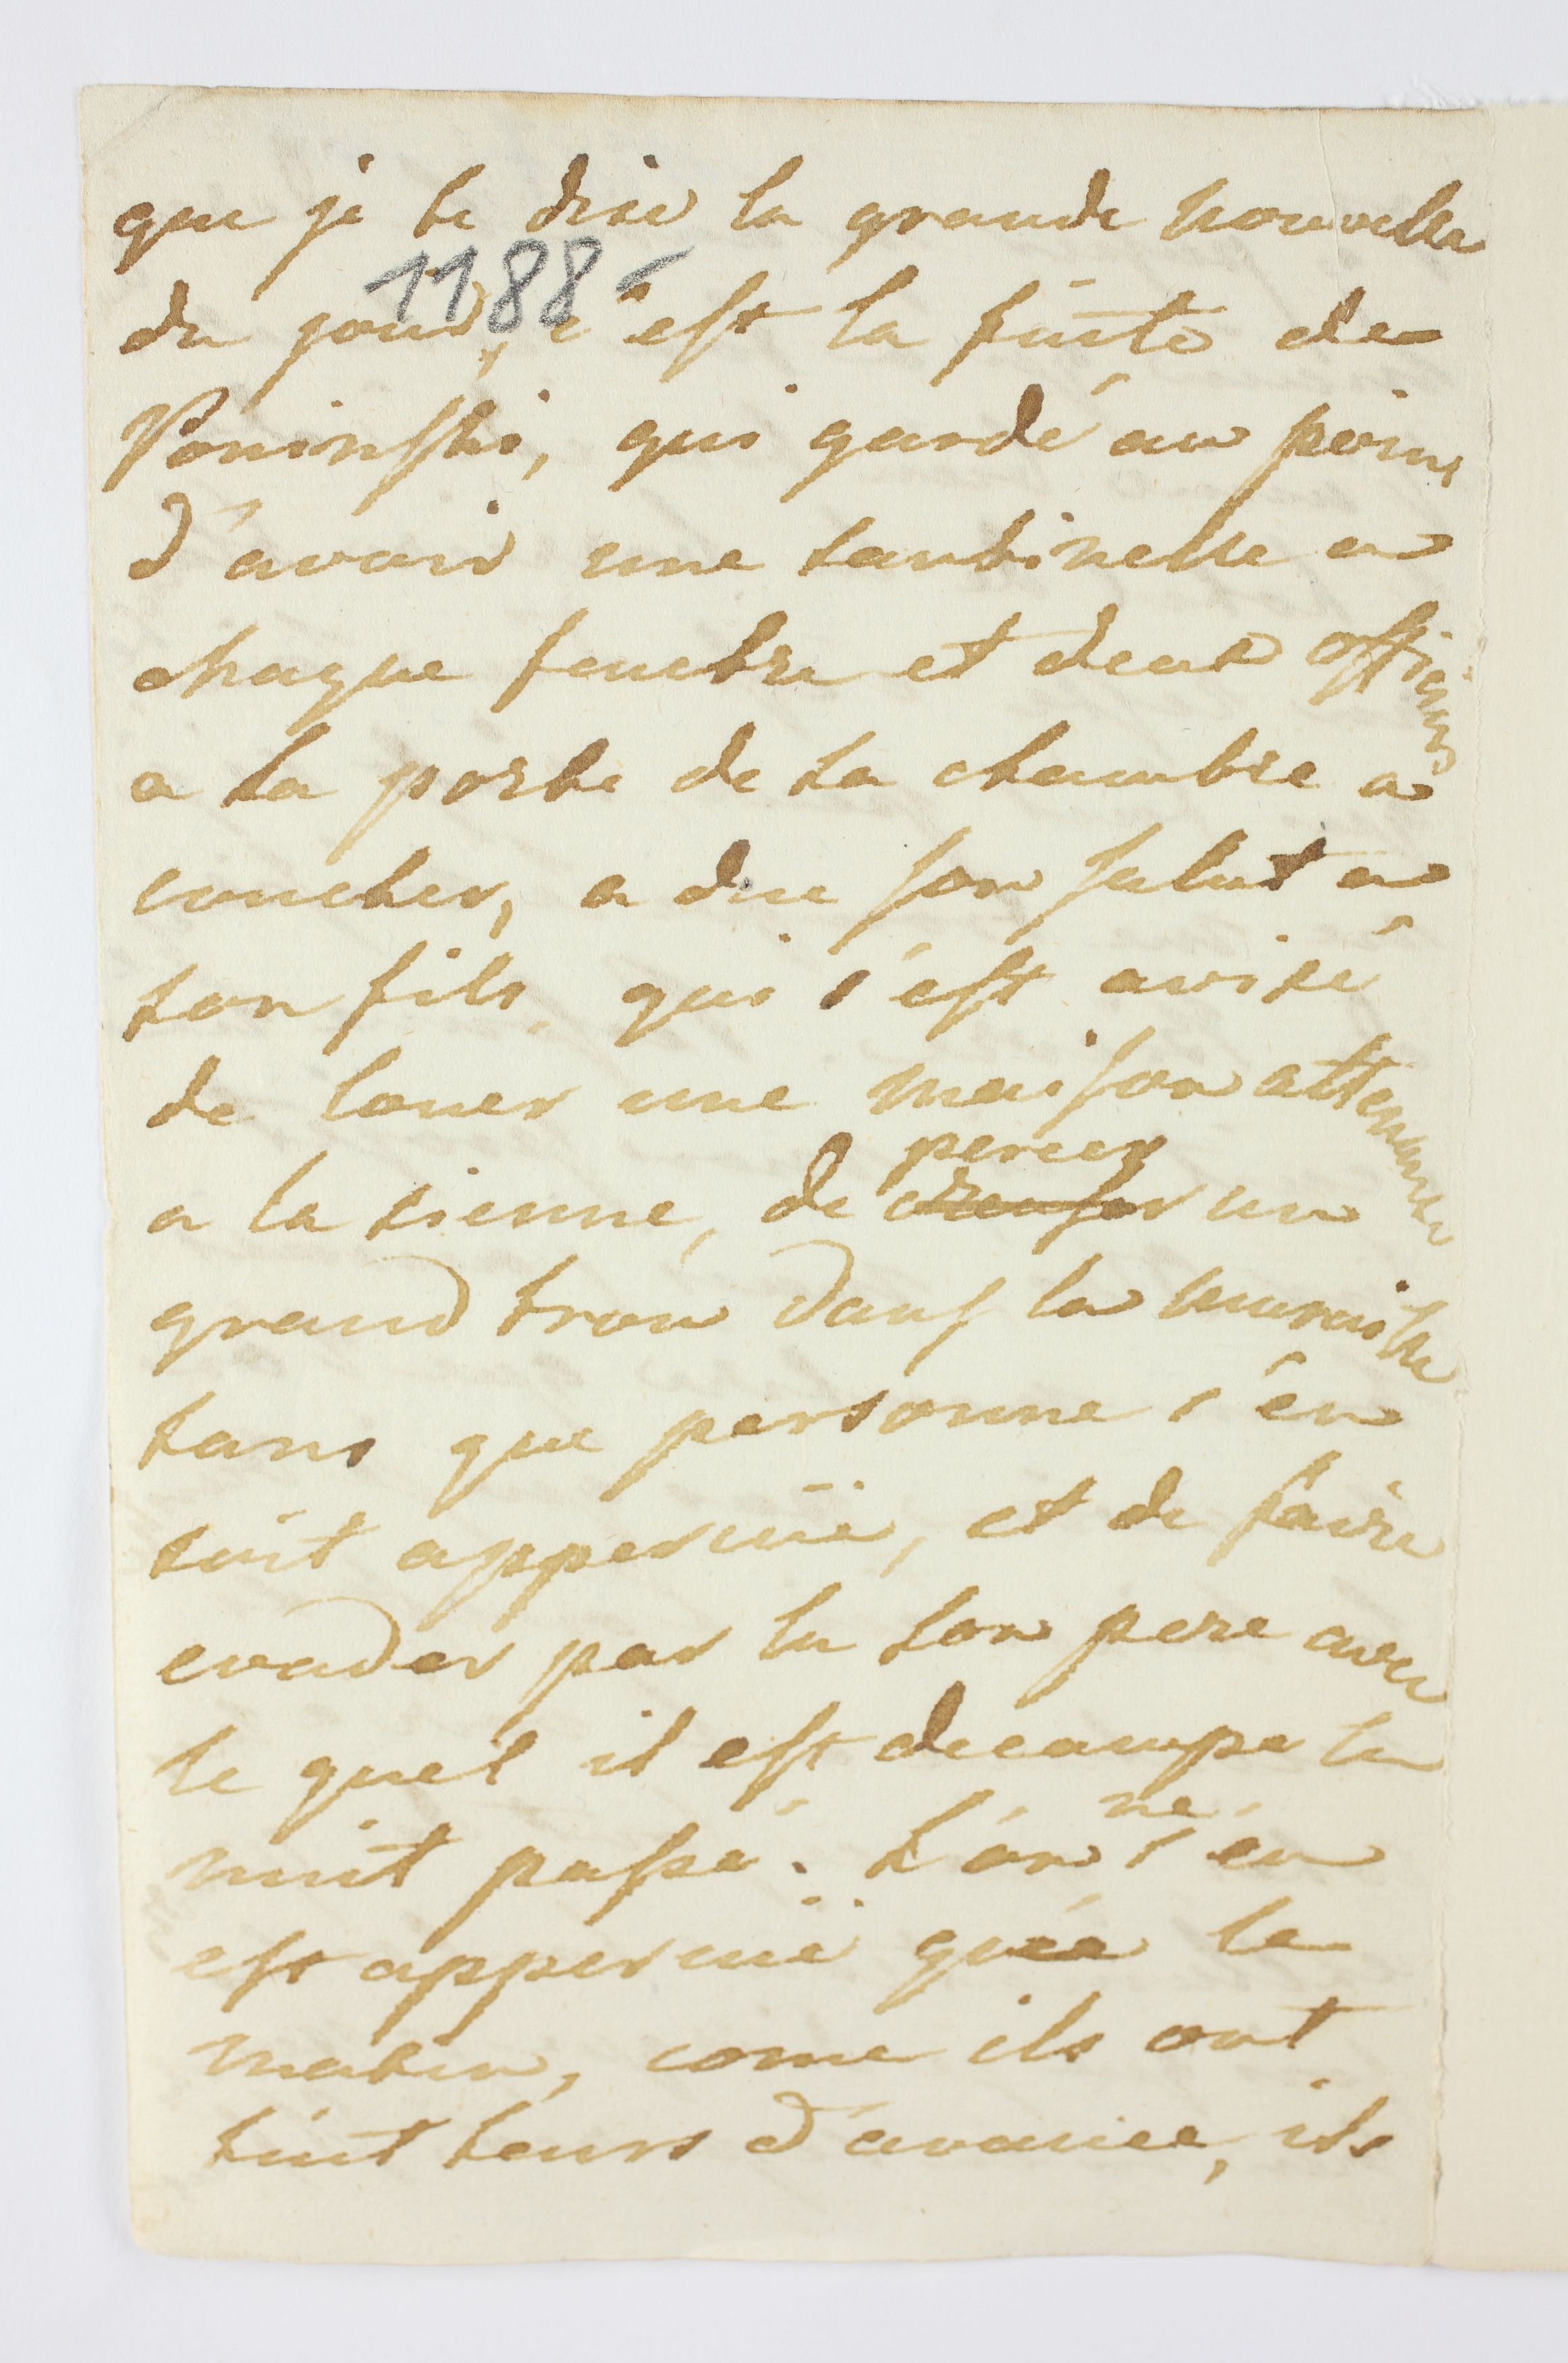 que je te dise la grande nouvelle
1188
du jour, c'est la fuite de
Poninski, qui gardé au point
d'avoir une santinelle a
chaque fenetre et deux officiers
a la porte de sa chambre a
coucher, a due son salut a
son fils qui s'est avisé
de louer une maison attenante
percer
a la sienne, de creuser un
grand trou dans la muraille
sans que personne s'en
soit apperçuë, et de faire
evader par la son pere avec
le quel il est decampé la
nuit passé. L'on ne s'en
est apperçuë qu'a le
matin, come ils ont
huit heurs d'avance, ils